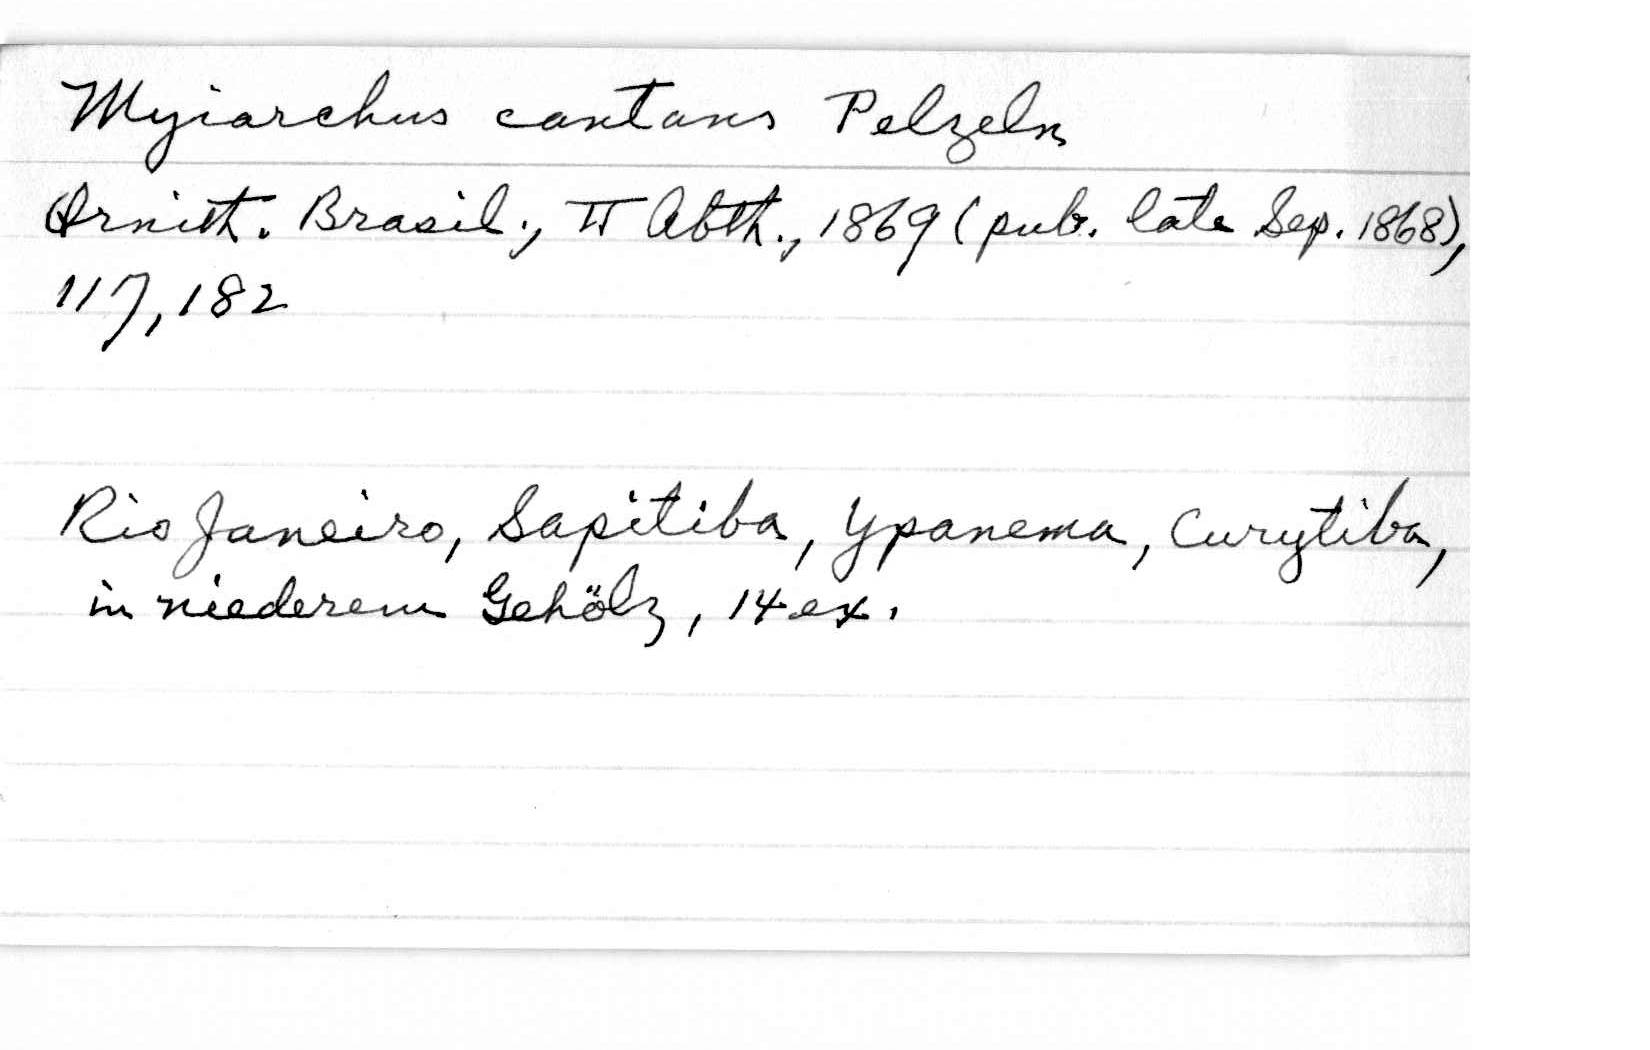 Myiarchus cantans Pelzeln
Ornith. Brasil., II Abth., 1869 (pub. late Sep. 1868),
117, 182
Rio Janeiro, Sapitiba, Ypanema, Curytiba,
in niederem Gehölz, 14 ex.